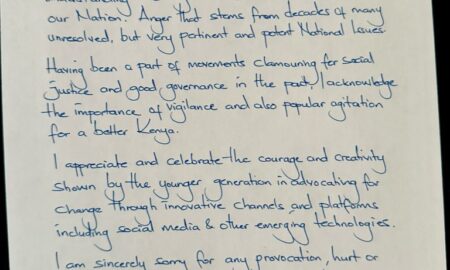 our Nation. Anger that stems from decades of many
unresolved, but very pertinent and potent National Issues
Having been a part of movements clamouring for social
justice and good governance in the past, I acknowledge
the importance of vigilance and also popular agitation
for a better Kenya.
I appreciate and celebrate the courage and creativity
shown by the younger generation in advocating for
change through innovative channels and platforms
including social media & other emerging technologies.
I am sincerely sorry for any provocation, hurt or